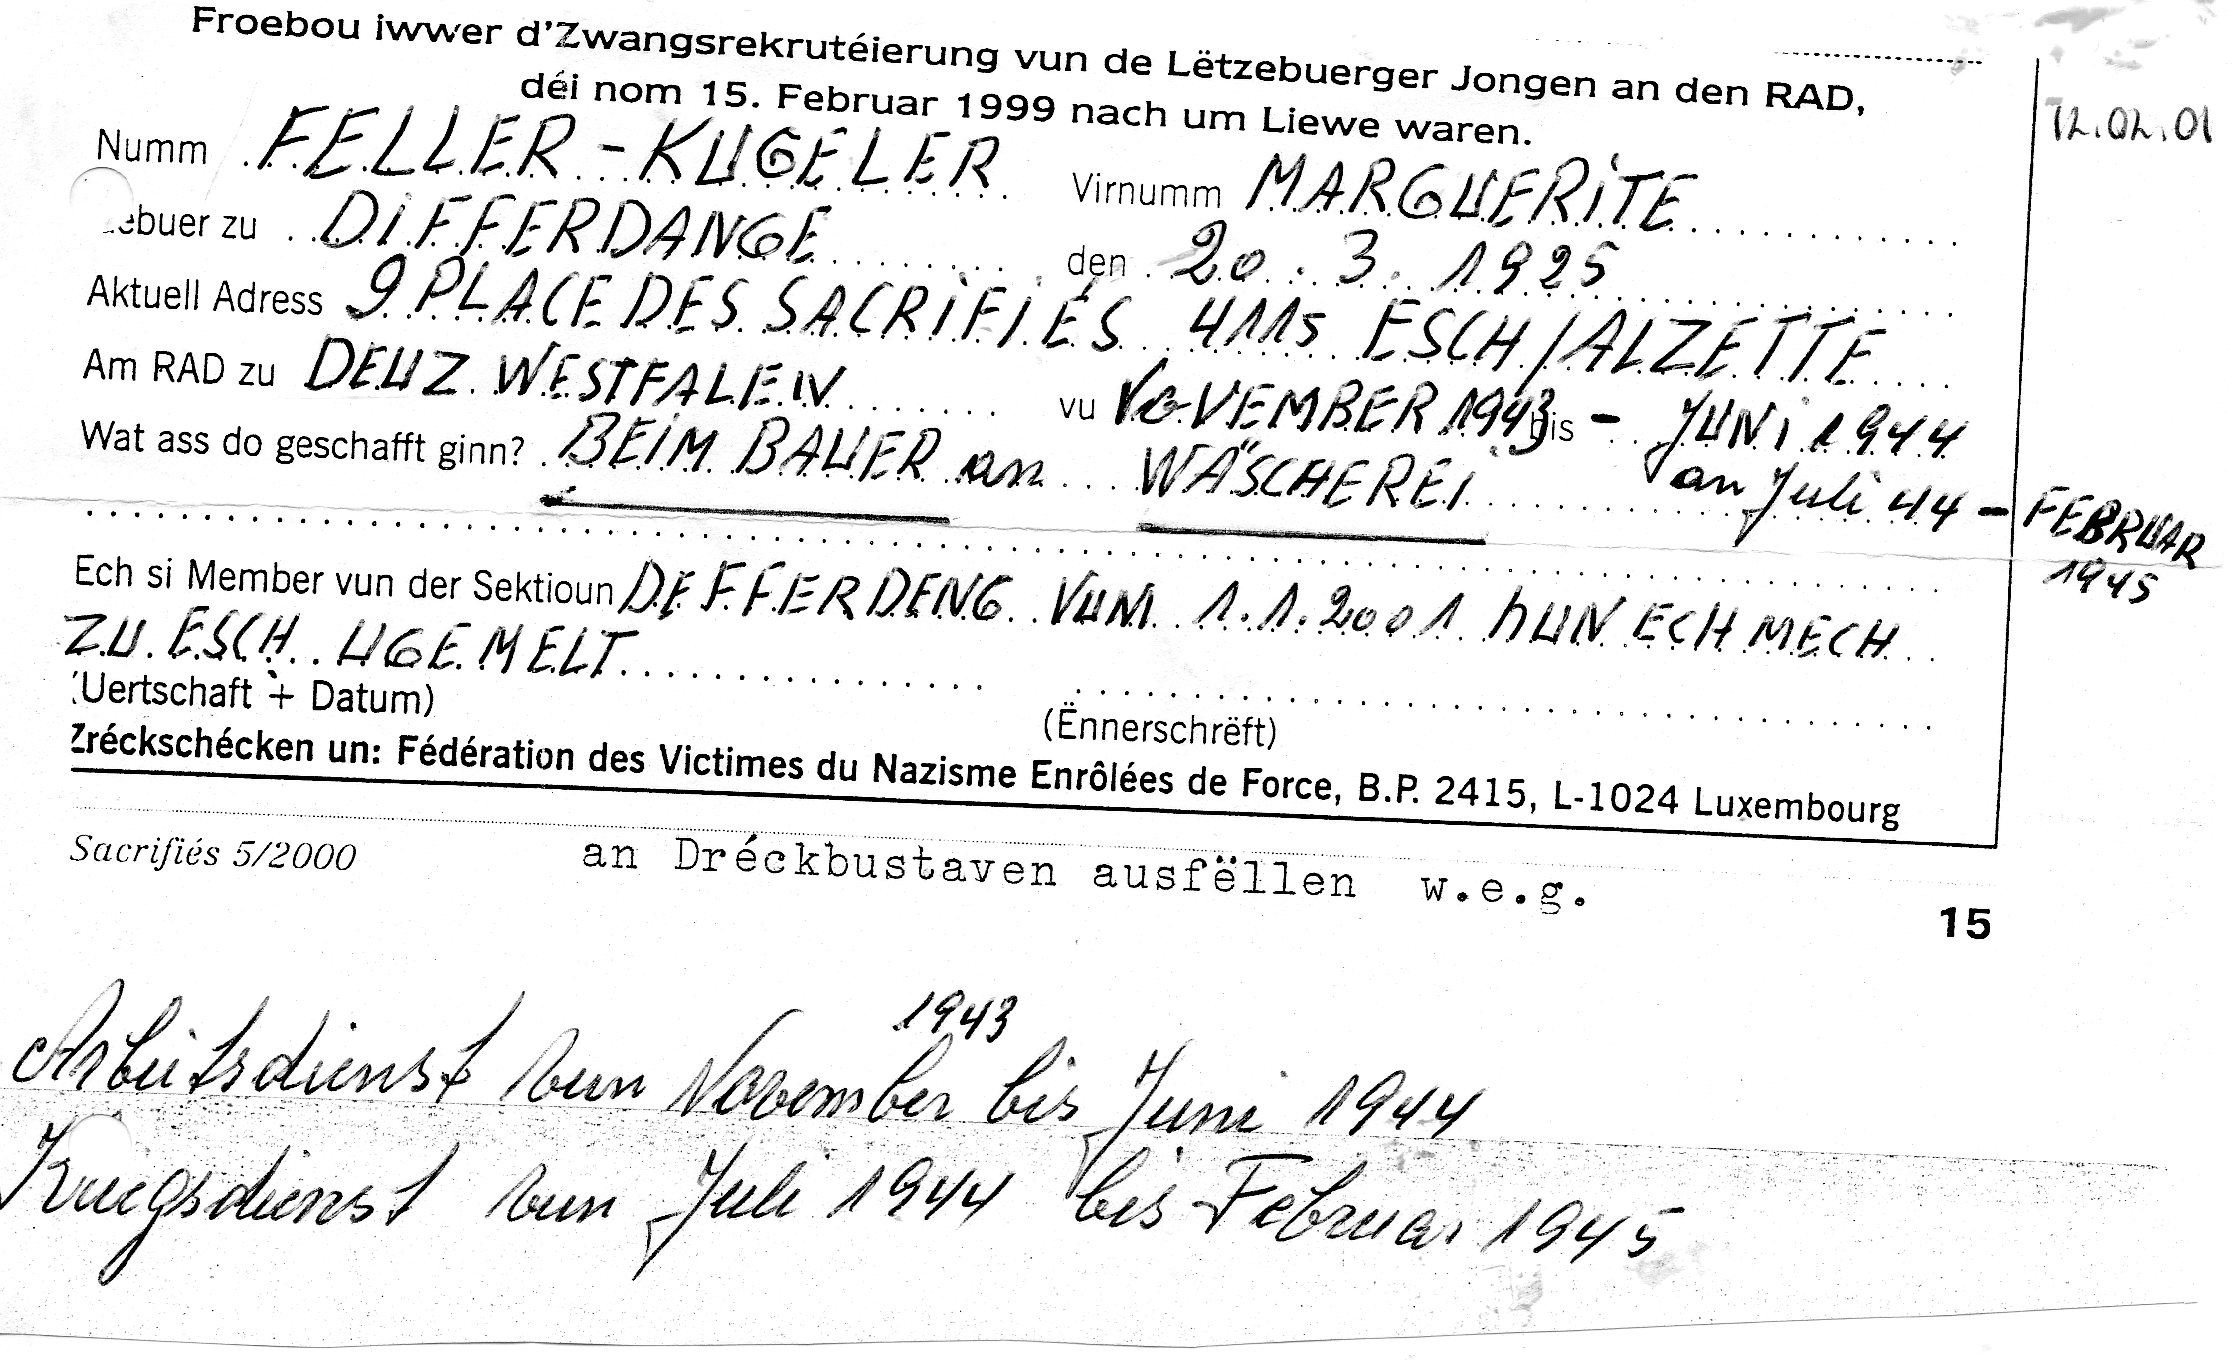 Froebou iwwer d'Zwangsrekrutéierung vun de Lëtzebuerger Jongen an den RAD,
déi nom 15. Februar 1999 nach um Liewe waren.
12.02.01
Numm FELLER-KUGELER Virnumm MARGUERITE
ebuer zu DIFFERDANGE den 20.3.1925
Aktuell Adress 9 PLACE DES SACRIFIÉS 4115 ESCH/ALZETTE
Am RAD zu DEUZ WESTFALEN vu NOVEMBER 1943 bis - JUNI 1944
Wat ass do geschafft ginn? BEIM BAUER an WÄSCHEREI an Juli 44 - FEBRUAR
1945
Ech si Member vun der Sektioun DEFFERDENG VUM 1.1.2001 HUN ECH MECH
ZU ESCH UGEMELT
(Uertschaft + Datum) (Ënnerschrëft)
Zréckschécken un: Fédération des Victimes du Nazisme Enrôlées de Force, B.P. 2415, L-1024 Luxembourg
Sacrifiés 5/2000 an Dréckbustaven ausfëllen w.e.g.
15
1943
Arbeitsdienst vun November bis Juni 1944
Kriegsdienst vun Juli 1944 bis Februar 1945